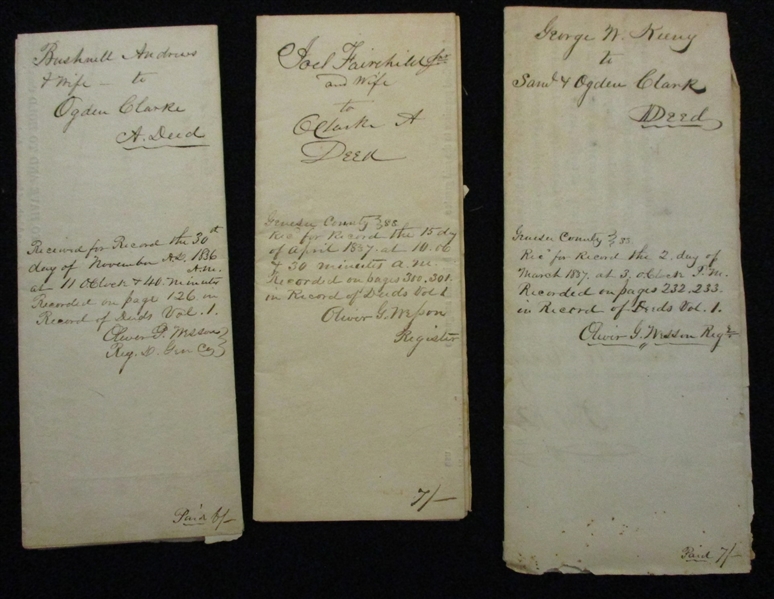 Bushnell Andrews
& Wife — to
Ogden Clarke
A. Deed
Received for Record the 30th
day of November A.D. 1836
at 11 O'Clock & 40. minutes A.M.
Recorded on page 126 in
Record of Deeds Vol. 1.
Oliver G. Wesson
Reg. D. Gen Co
Paid 6/—
Joel Fairchild Jnr
and Wife
to
O Clarke A
Deed
Genesee County } SS.
Rec for Record the 15 day
of April 1837. at 10. Oc
& 30 minutes a.m.
Recorded on pages 300, 301.
in Record of Deeds Vol 1
Oliver G. Wesson
Register
7/—
George W. Keeny
to
Saml & Ogden Clark
Deed
Genesee County } SS.
Recd for Record the 2. day of
March 1837. at 3. oClock P.M.
Recorded on pages 232, 233.
in Record of Deeds Vol. 1.
Oliver G. Wesson Regr
Paid 7/—